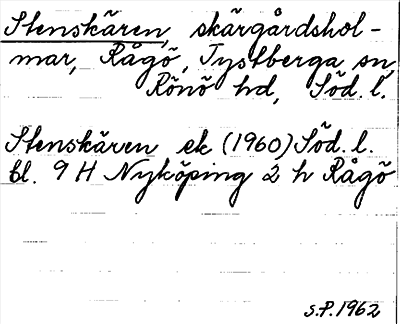 Stenskären, skärgårdshol-
mar, Rågö, Tystberga sn,
Rönö hd, Söd. l.
Stenskären ek (1960) Söd. l.
bl. 9 H Nyköping 2 h Rågö
S.P. 1962